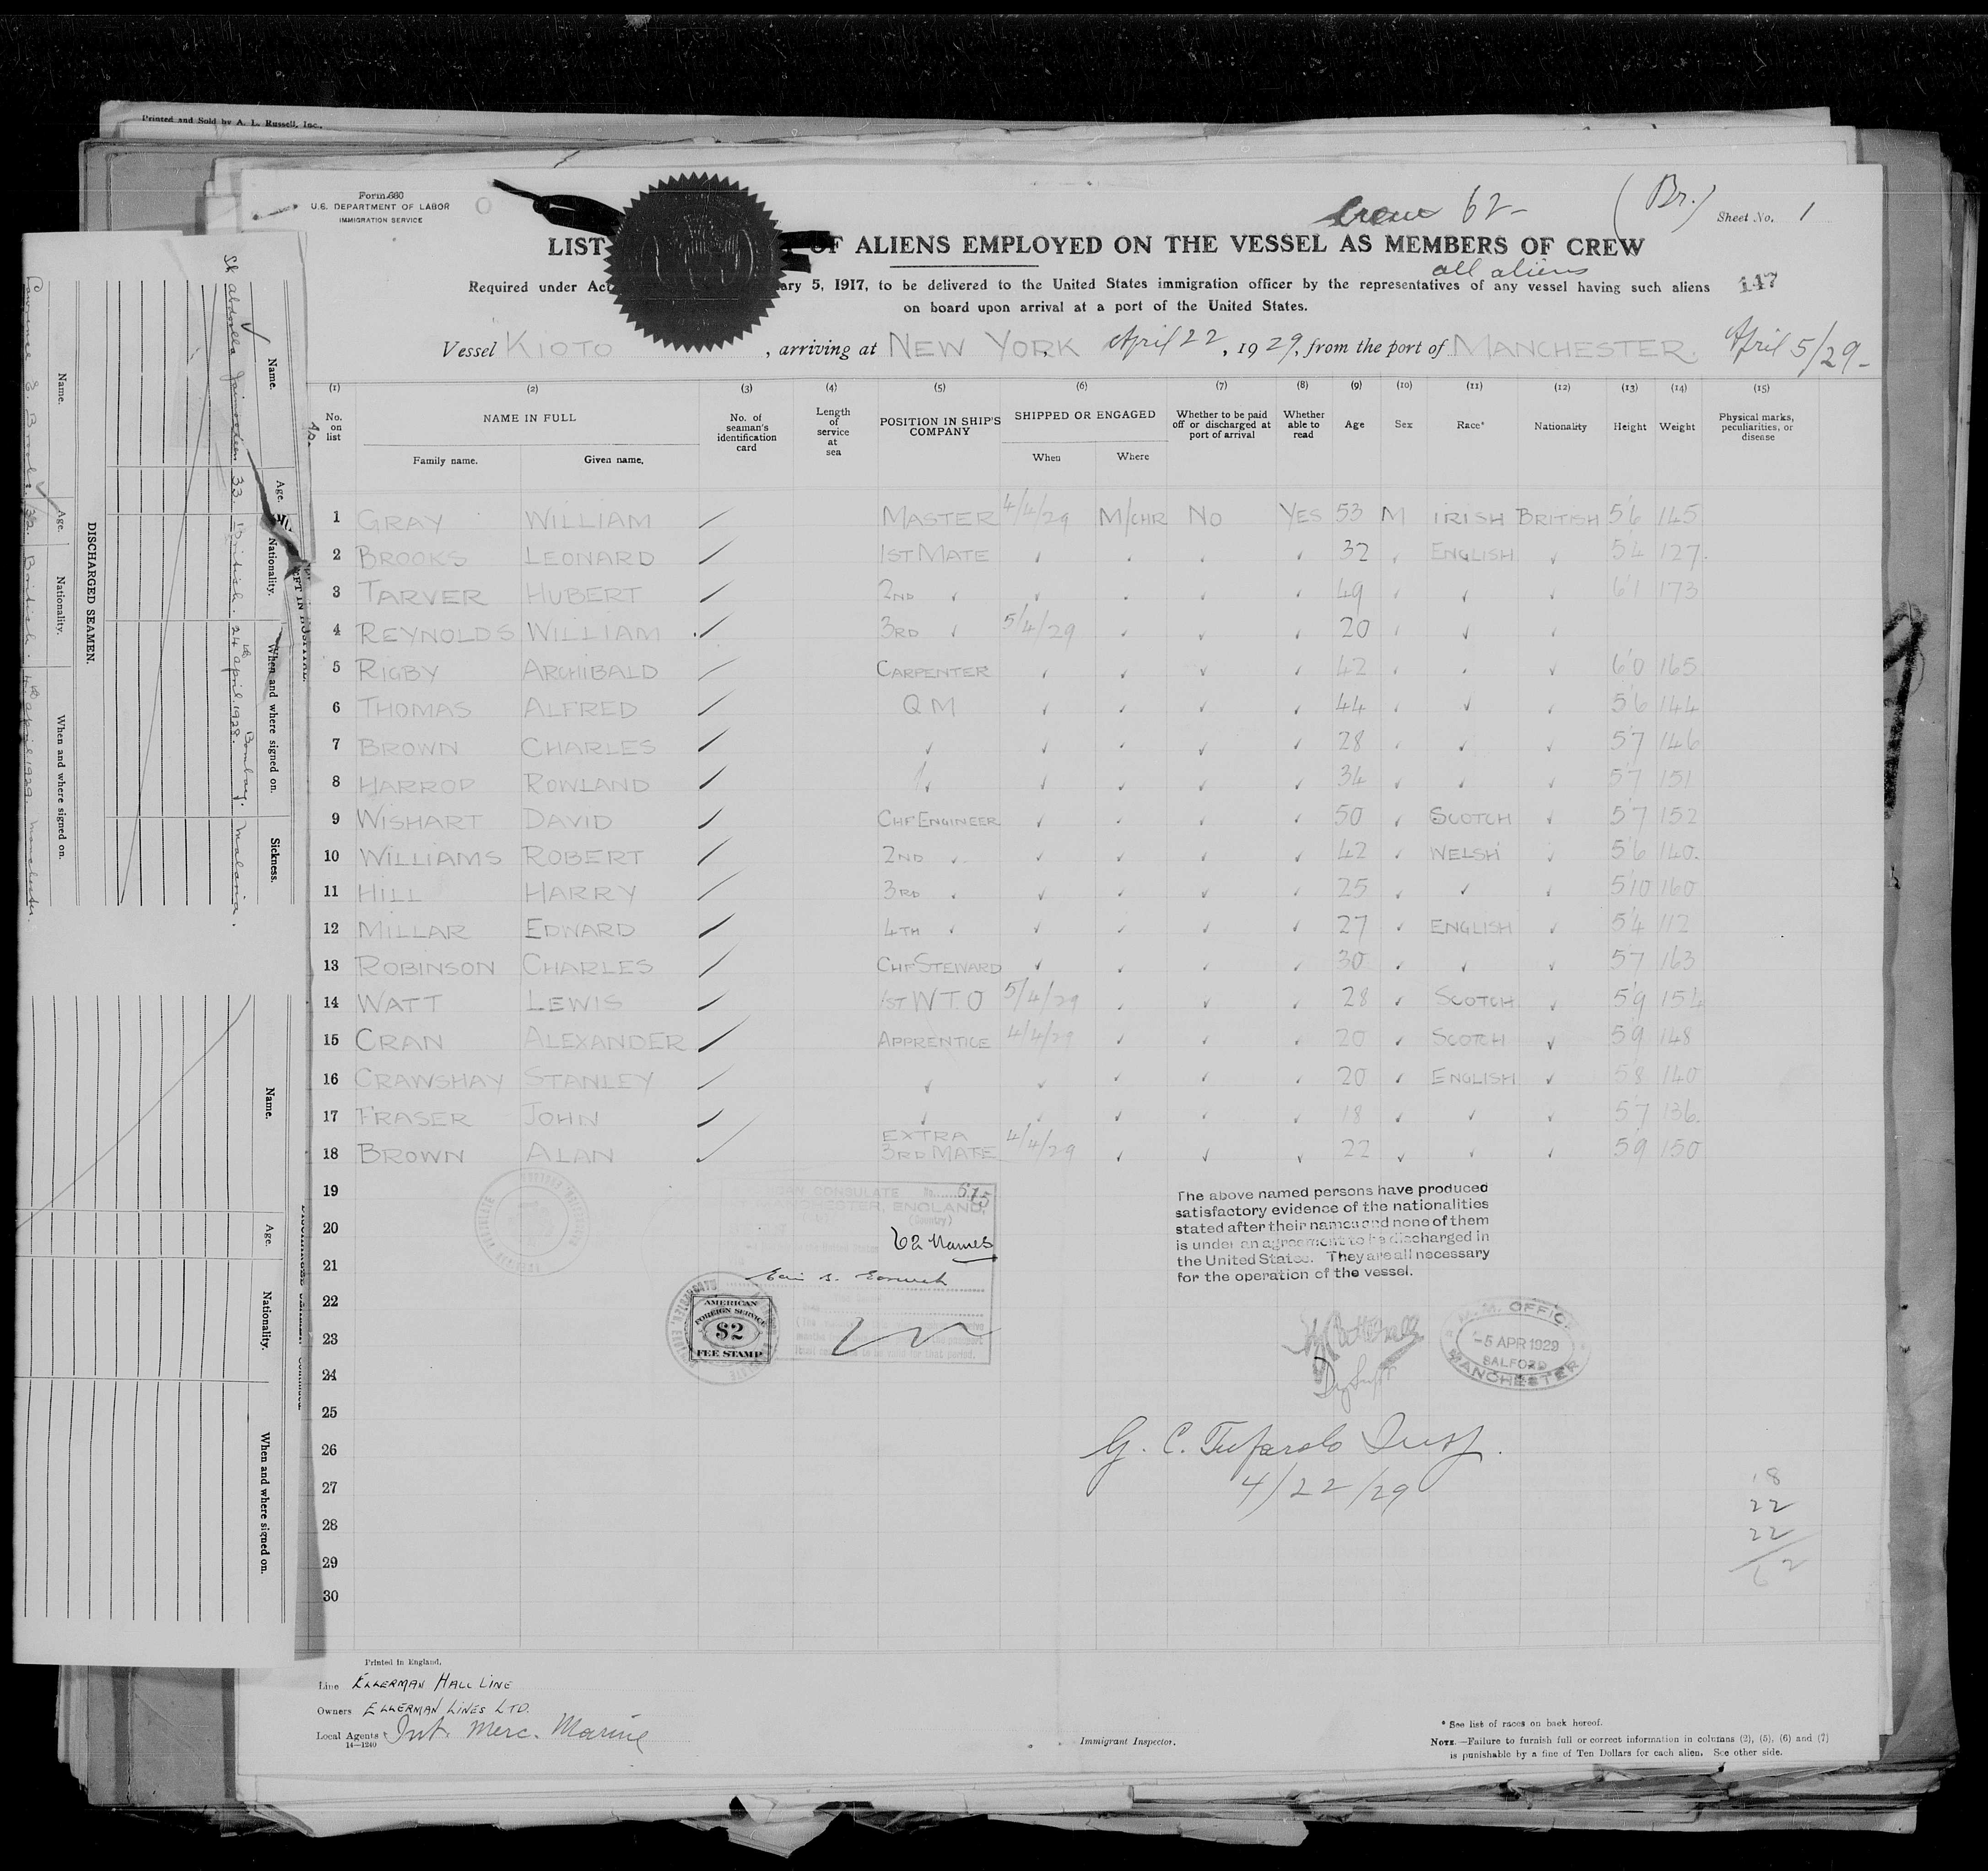 Printed and Sold by A. L. Russell, Inc.,
Form 680
U.S. DEPARTMENT OF LABOR
IMMIGRATION SERVICE
Crew 62- (Br.) Sheet No. 1
LIST OF ALIENS EMPLOYED ON THE VESSEL AS MEMBERS OF CREW
all aliens
Required under Act ary 5, 1917, to be delivered to the United States immigration officer by the representatives of any vessel having such aliens 147
on board upon arrival at a port of the United States.
Vessel KIOTO , arriving at NEW YORK April 22, 1929, from the port of MANCHESTER. April 5/29-
(1) (2) (3) (4) (5) (6) (7) (8) (9) (10) (11) (12) (13) (14) (15)
No. on list NAME IN FULL Family name. Given name. No. of seaman's identification card Length of service at sea POSITION IN SHIP'S COMPANY SHIPPED OR ENGAGED When Where Whether to be paid off or discharged at port of arrival Whether able to read Age Sex Race* Nationality Height Weight Physical marks, peculiarities, or disease
1 GRAY WILLIAM / MASTER 4/4/29 M/CHR NO YES 53 M IRISH BRITISH 5'6 145
2 BROOKS LEONARD / 1ST MATE ✓ ✓ ✓ ✓ 32 ✓ ENGLISH ✓ 5'4 127.
3 TARVER HUBERT / 2ND ✓ ✓ ✓ ✓ ✓ 49 ✓ ✓ ✓ 6'1 173
4 REYNOLDS WILLIAM / 3RD ✓ 5/4/29 ✓ ✓ ✓ 20 ✓ ✓ ✓
5 RIGBY ARCHIBALD / CARPENTER ✓ ✓ ✓ ✓ 42 ✓ ✓ ✓ 6'0 165
6 THOMAS ALFRED / Q M ✓ ✓ ✓ ✓ 44 ✓ ✓ ✓ 5'6 144
7 BROWN CHARLES / ✓ ✓ ✓ ✓ ✓ 28 ✓ ✓ ✓ 5'7 146
8 HARROP ROWLAND / ✓ ✓ ✓ ✓ ✓ 34 ✓ ✓ ✓ 5'7 151
9 WISHART DAVID / CHF ENGINEER ✓ ✓ ✓ ✓ 50 ✓ SCOTCH ✓ 5'7 152
10 WILLIAMS ROBERT / 2ND ✓ ✓ ✓ ✓ ✓ 42 ✓ WELSH ✓ 5'6 140.
11 HILL HARRY / 3RD ✓ ✓ ✓ ✓ ✓ 25 ✓ ✓ ✓ 5'10 160
12 MILLAR EDWARD / 4TH ✓ ✓ ✓ ✓ ✓ 27 ✓ ENGLISH ✓ 5'4 112
13 ROBINSON CHARLES / CHF STEWARD ✓ ✓ ✓ ✓ 30 ✓ ✓ ✓ 5'7 163
14 WATT LEWIS / 1ST W.T.O 5/4/29 ✓ ✓ ✓ 28 ✓ SCOTCH ✓ 5'9 154
15 CRAN ALEXANDER / APPRENTICE 4/4/29 ✓ ✓ ✓ 20 ✓ SCOTCH ✓ 5'9 148
16 CRAWSHAY STANLEY / ✓ ✓ ✓ ✓ ✓ 20 ✓ ENGLISH ✓ 5'8 140
17 FRASER JOHN / ✓ ✓ ✓ ✓ ✓ 18 ✓ ✓ ✓ 5'7 136.
18 BROWN ALAN / EXTRA 3RD MATE 4/4/29 ✓ ✓ ✓ 22 ✓ ✓ ✓ 5'9 150
19
20
21
22
23
24
25
26
27
28
29
30
CONSULATE No. 615
MANCHESTER, ENGLAND,
(Country)
62 Names
AMERICAN
FOREIGN SERVICE
$2
FEE STAMP
The above named persons have produced
satisfactory evidence of the nationalities
stated after their names and none of them
is under an agreement to be discharged in
the United States. They are all necessary
for the operation of the vessel.
M.M. OFFICE
-5 APR 1929
SALFORD
MANCHESTER
G. C. Tufarolo Insp.
4/22/29
18
22
22
62
Printed in England.
Line ELLERMAN HALL LINE
Owners ELLERMAN LINES LTD.
Local Agents Int. Merc. Marine
14—1240
Immigrant Inspector.
* See list of races on back hereof.
NOTE.—Failure to furnish full or correct information in columns (2), (5), (6) and (7)
is punishable by a fine of Ten Dollars for each alien. See other side.
Name. Age. Nationality. When and where signed on. Sickness.
Sk Abdulla Jainoodin 33. British. 24th april 1928. Bombay. Malaria.
DISCHARGED SEAMEN.
Name. Age. Nationality. When and where signed on.
Brooks. 32. British. 4th april 1929. Manchester.
Name. Age. Nationality. When and where signed on.